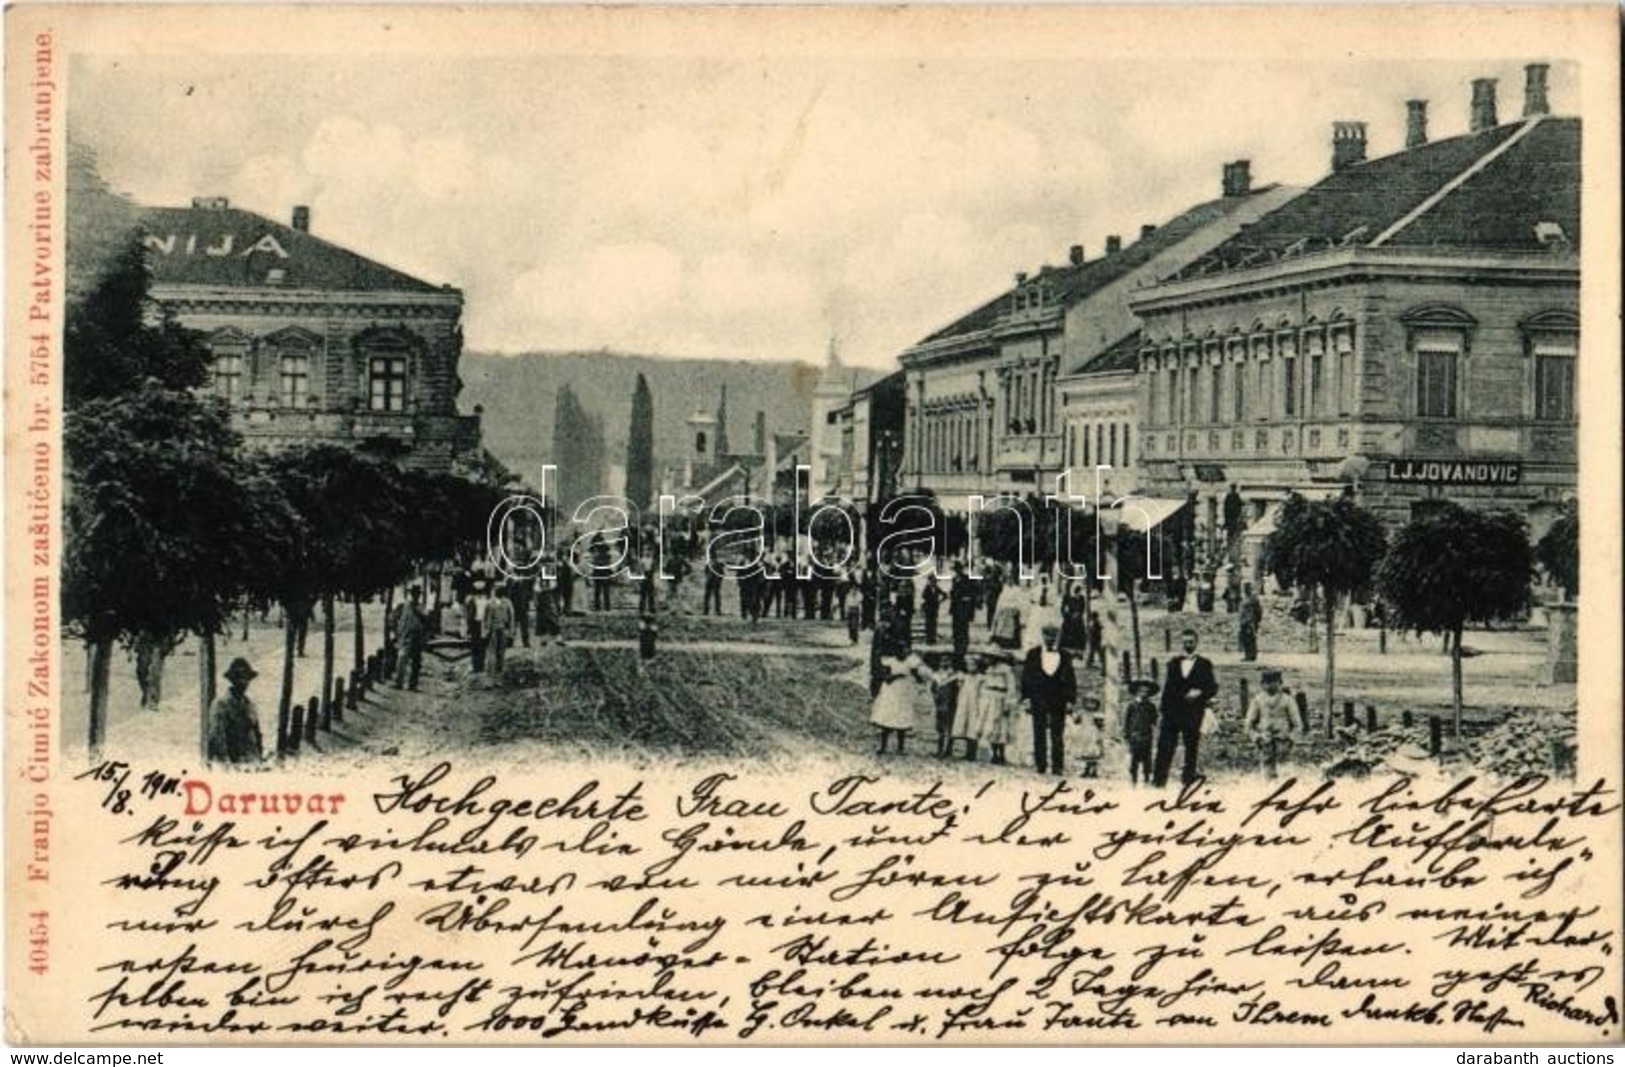 40454 Franjo Čimić Zakonom zaštićeno br. 5754 Patvorine zabranjene.
NIJA
L.J.JOVANOVIC
darabanth
15./8. 1901. Daruvar Hochgeehrte Frau Tante! Für die sehr liebe Karte
küsse ich vielmals die Hände, und der gütigen Aufforde„
rung öfters etwas von mir hören zu lassen, erlaube ich
mir durch Übersendung einer Ansichtskarte aus meiner
ersten heurigen Manöver-Station folge zu leisten. Mit der„
selben bin ich recht zufrieden, bleiben noch 2 Tage hier, dann geht es
wieder weiter. 1000 Handküsse H. Onkel u. Frau Tante von Ihrem dankb. Neffen
Richard.
darabanth auctions